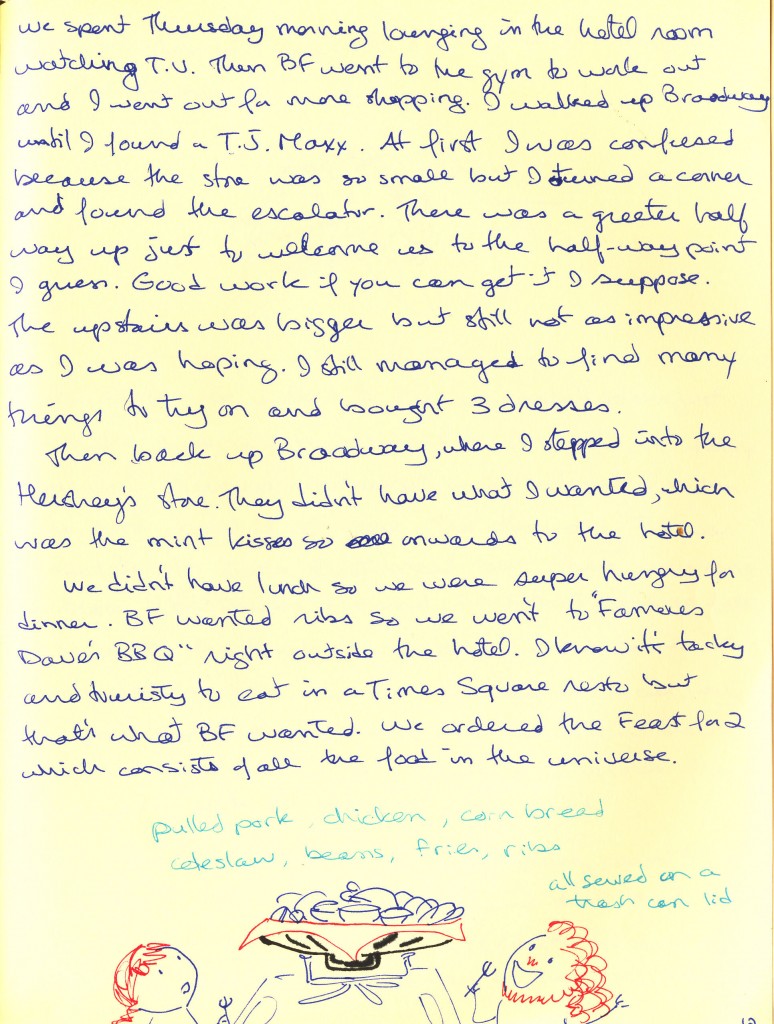 we spent Thursday morning lounging in the hotel room
watching T.V. Then BF went to the gym to work out
and I went out for more shopping. I walked up Broadway
until I found a T.J. Maxx. At first I was confused
because the store was so small but I turned a corner
and found the escalator. There was a greeter half
way up just to welcome us to the half-way point
I guess. Good work if you can get it I suppose.
The upstairs was bigger but still not as impressive
as I was hoping. I still managed to find many
things to try on and bought 3 dresses.
Then back up Broadway, where I stepped into the
Hershey's store. They didn't have what I wanted, which
was the mint kisses so onwards to the hotel.
We didn't have lunch so we were super hungry for
dinner. BF wanted ribs so we went to "Famous
Dave's BBQ" right outside the hotel. I know it's tacky
and touristy to eat in a Times Square resto but
that's what BF wanted. We ordered the Feast for 2
which consists of all the food in the universe.
pulled pork, chicken, corn bread
coleslaw, beans, fries, ribs
all served on a
trash can lid